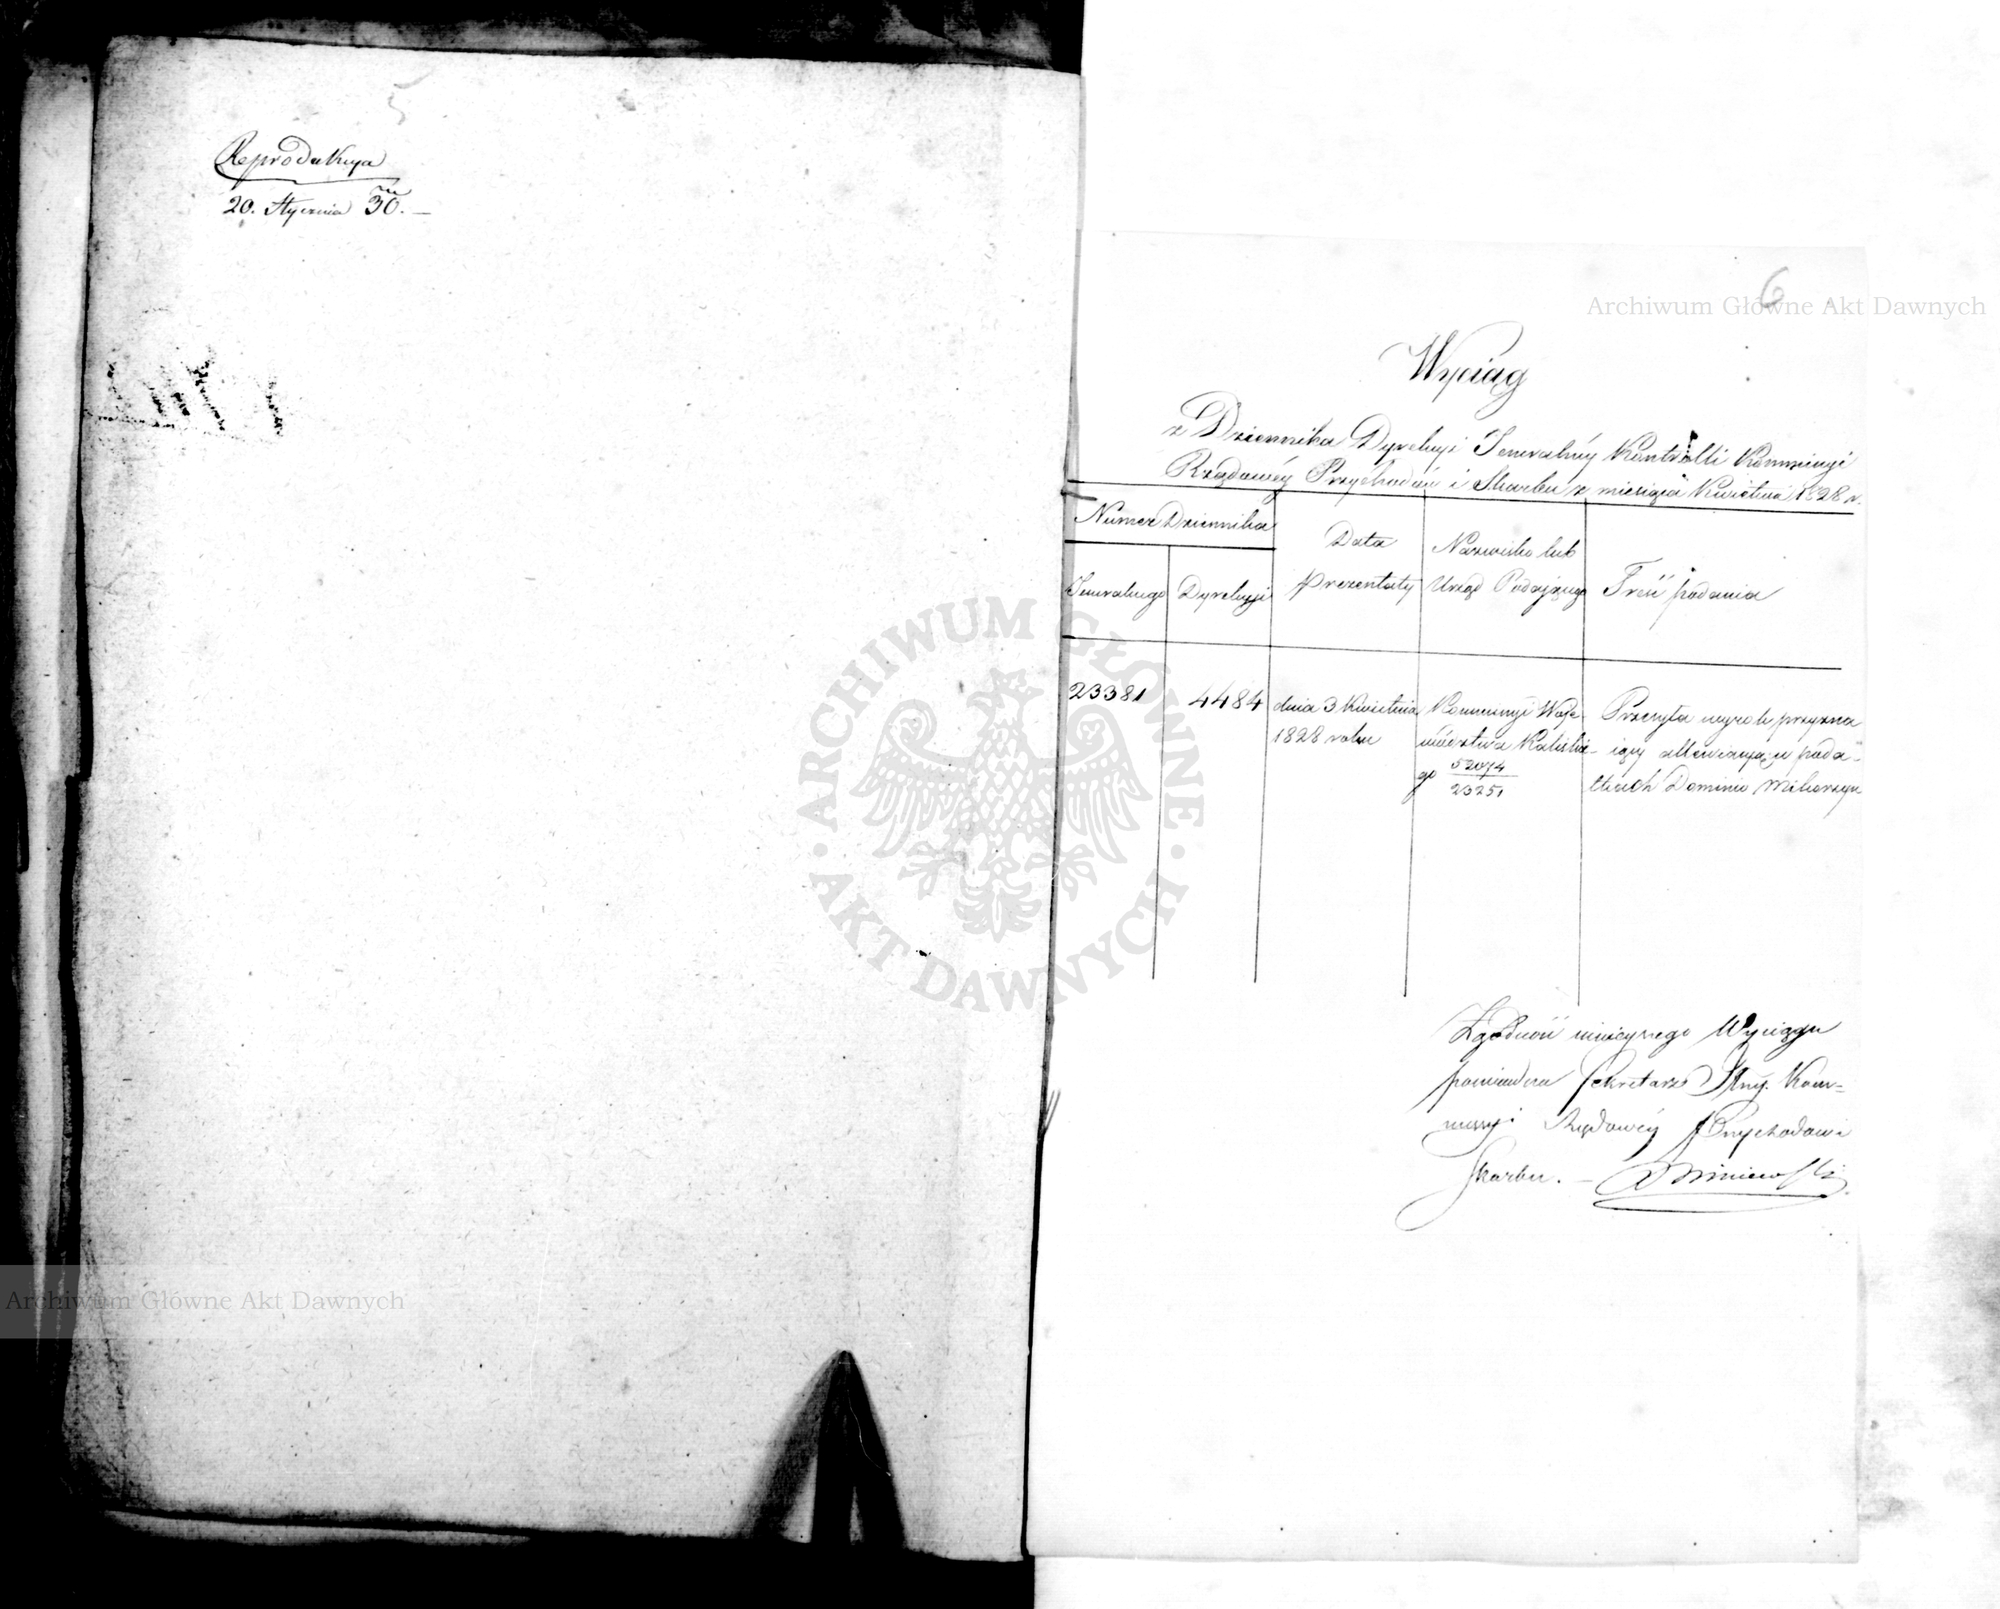 5
Reprodukcya
20. Stycznia 30.
6
Wyciąg
z Dziennika Dyrekcyi Jeneralnéy Kontrolli Kommissyi
Rządowéy Przychodów i Skarbu z miesiąca Kwietnia 1828 r.
Numer Dziennika
Jeneralnego
Dyrekcyi
Data
Prezentaty
Nazwisko lub
Urząd Podającego
Treść podania
23381
4484
dnia 3 Kwietnia
1828 roku
Kommissyi Woje
wództwa Kaliskie-
go 52074
23251
Przesyła wyrok przyzna
iący allewiacyą w poda-
tkach Dominio
Zgodność ninieyszego Wyciągu
poświadcza Sekretarz Jlny. Kom-
missyi Rządowéy Przychodów i
Skarbu.
ARCHIWUM GŁÓWNE AKT DAWNYCH
Archiwum Główne Akt Dawnych
Archiwum Główne Akt Dawnych